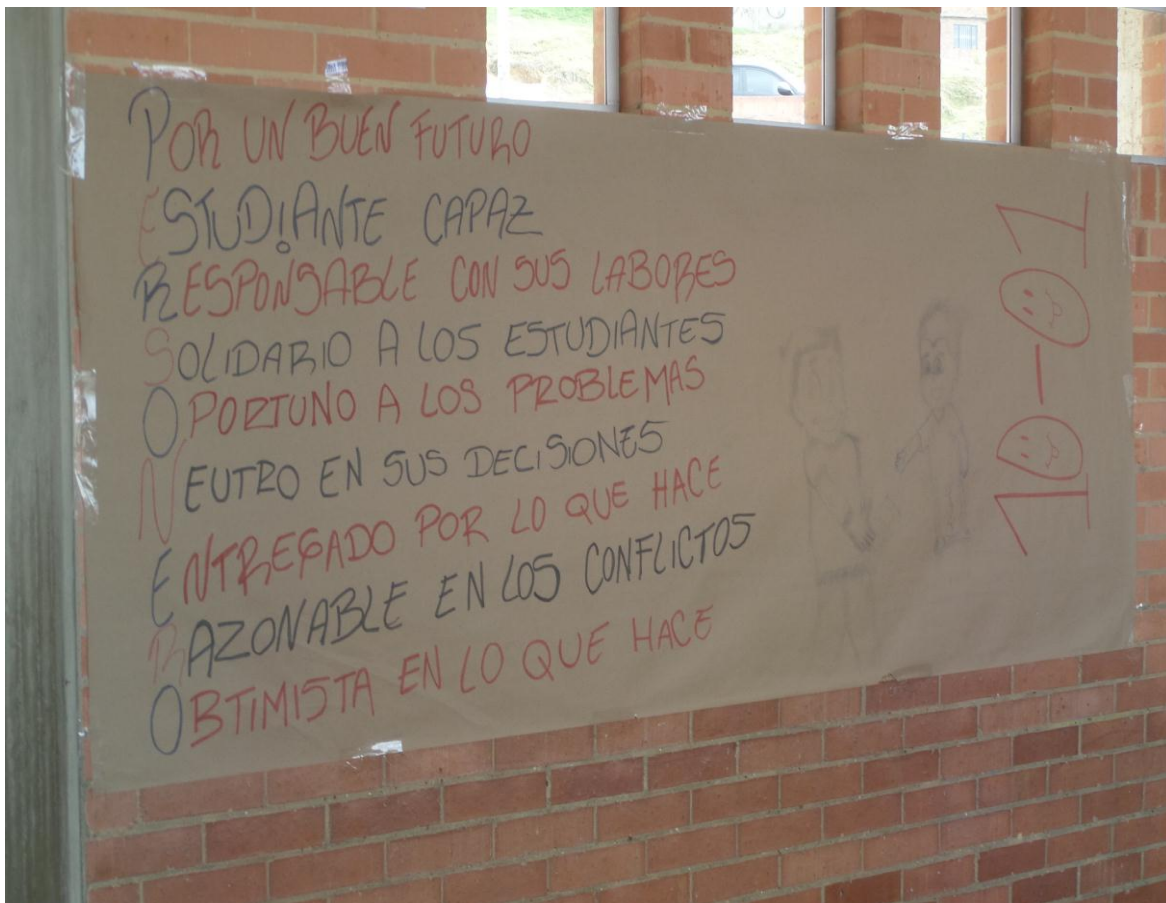 POR UN BUEN FUTURO
ESTUDIANTE CAPAZ
RESPONSABLE CON SUS LABORES
SOLIDARIO A LOS ESTUDIANTES
OPORTUNO A LOS PROBLEMAS
NEUTRO EN SUS DECISIONES
ENTREGADO POR LO QUE HACE
RAZONABLE EN LOS CONFLICTOS
OBTIMISTA EN LO QUE HACE
10-01